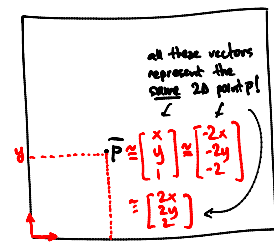 all these vectors
represent the
same 2D point p!
y
p̅ ≅ [x y 1] ≅ [-2x -2y -2]
≅ [2x 2y 2]